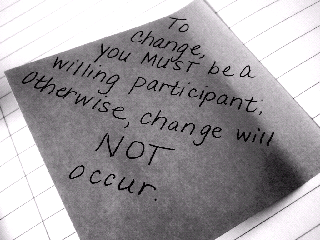 To
change,
you MUST be a
willing participant;
Otherwise, change will
NOT
occur.